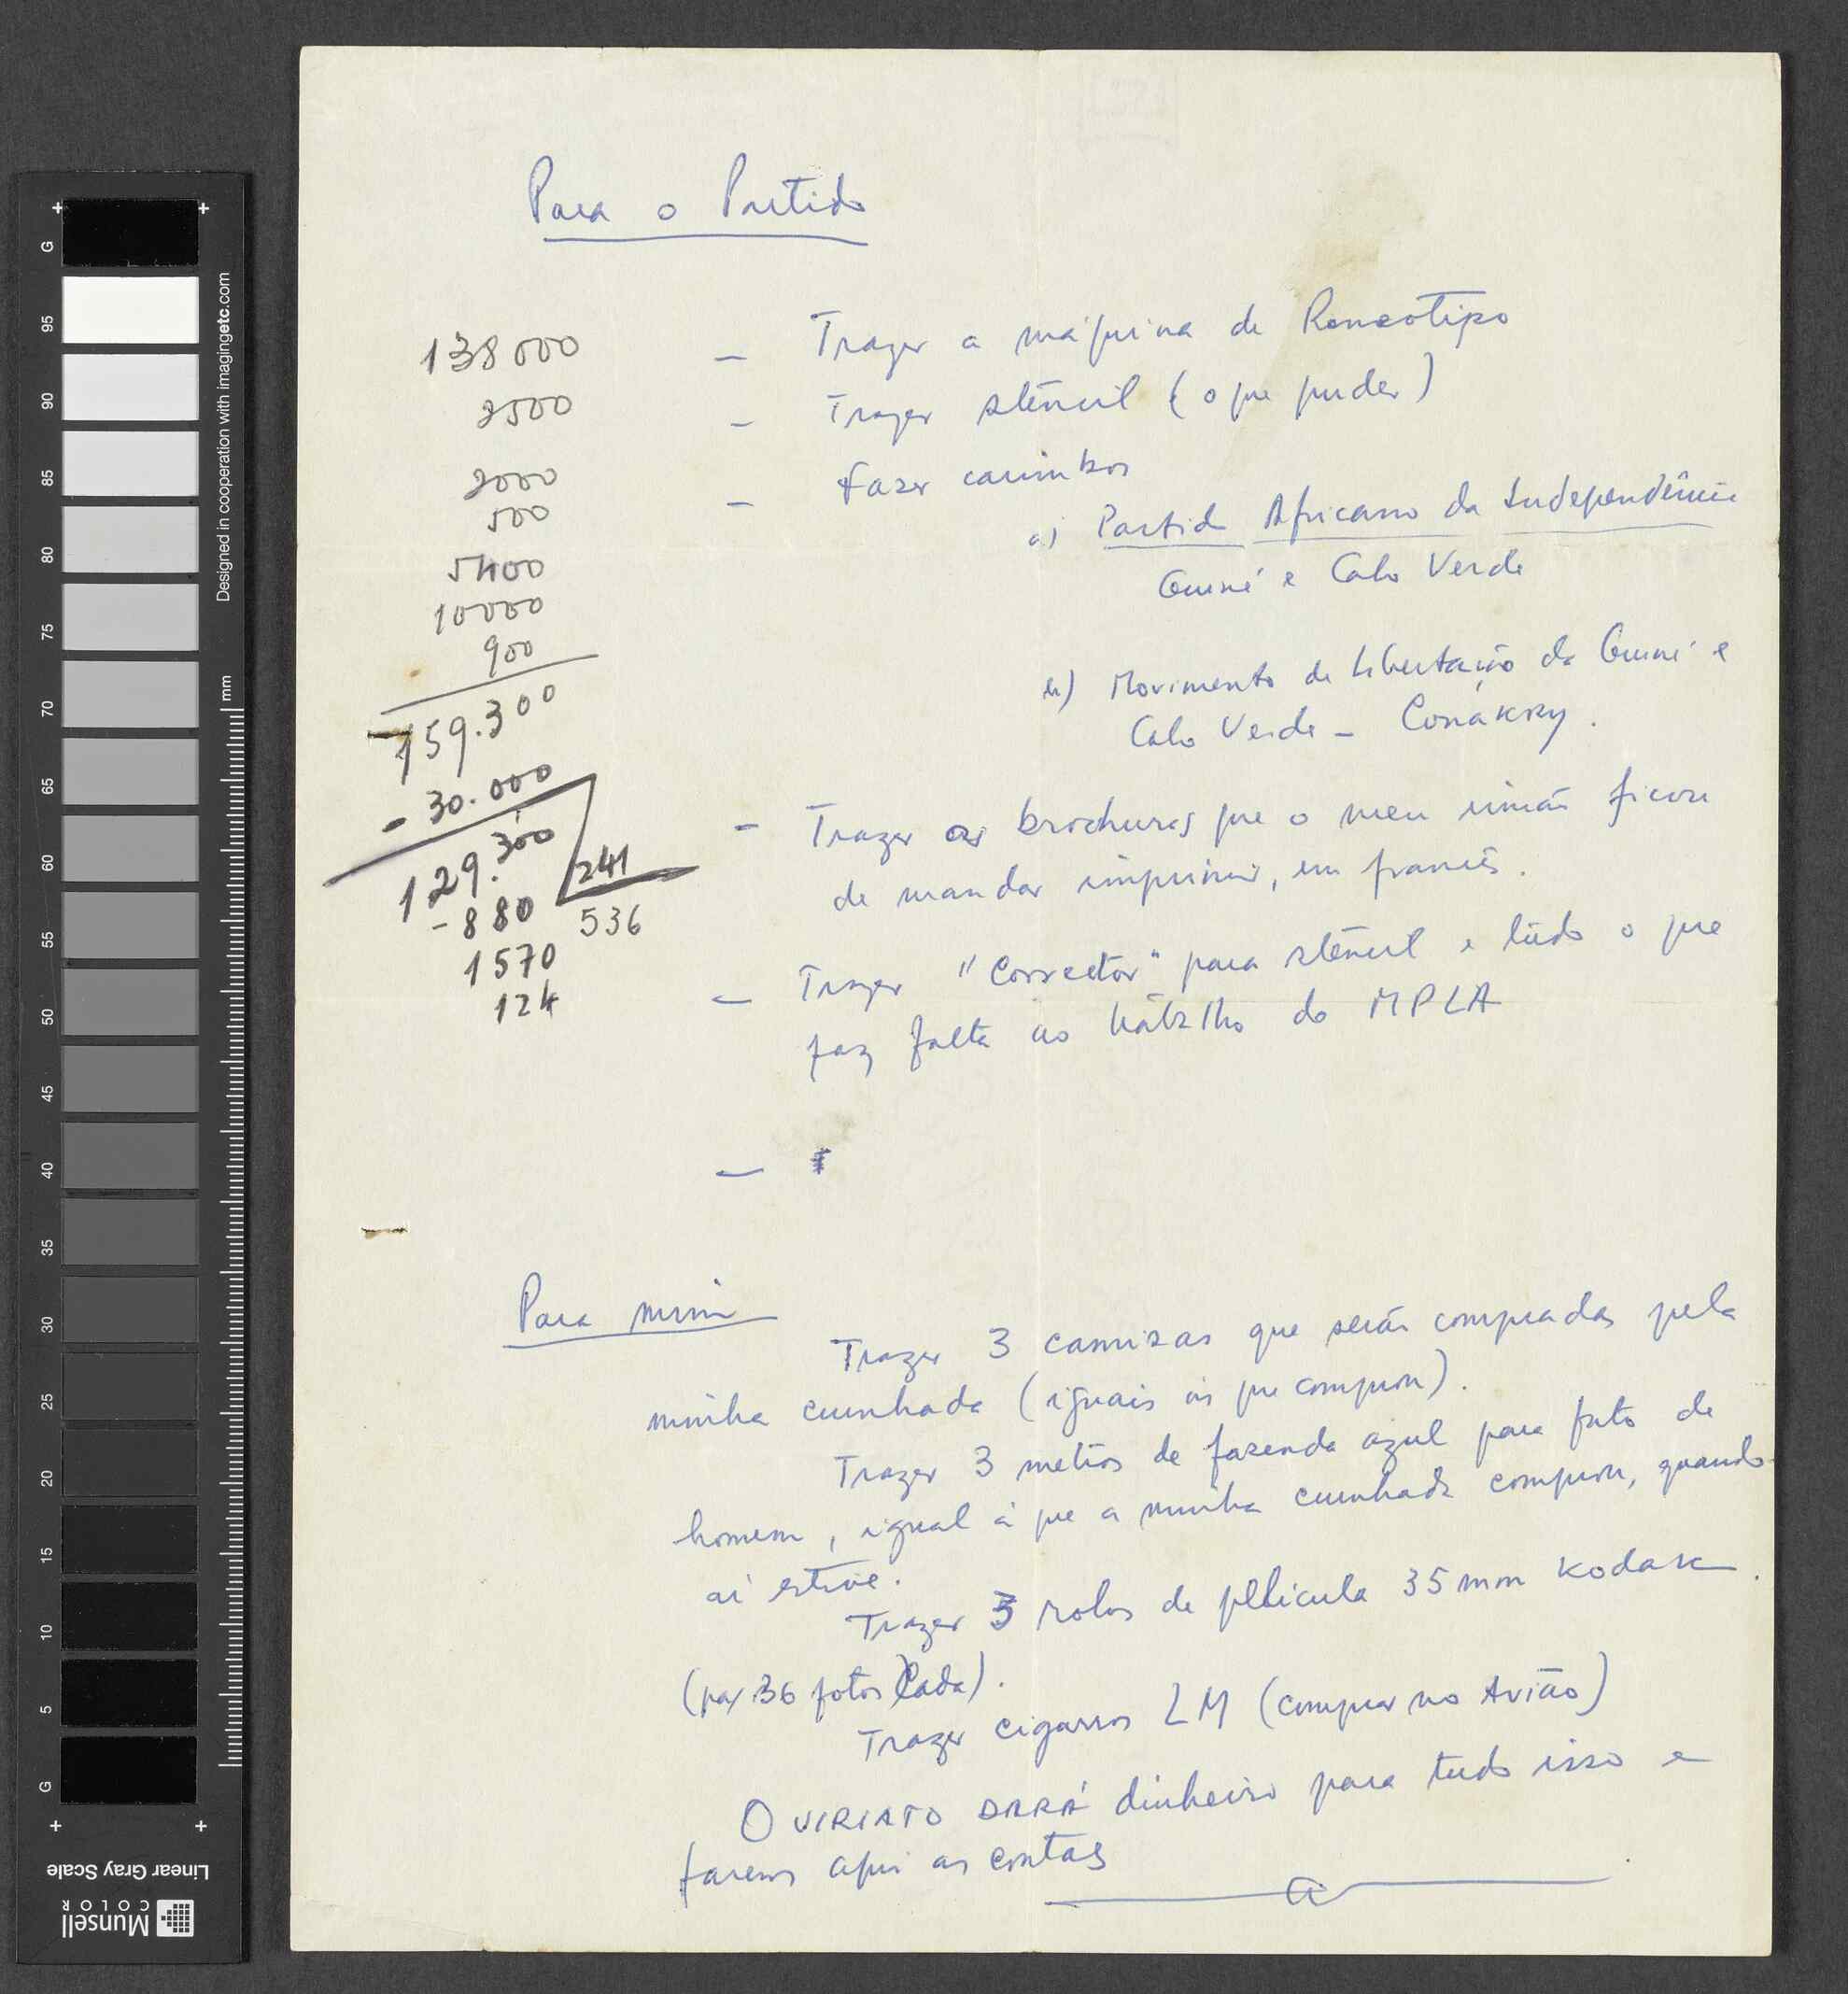 Para o Partido
138000
2500
2000
500
5400
10000
900
159.300
- 30.000
129.300
241
- 880
536
1570
124
— Trazer a máquina de Roneotipo
— Trazer sténcil (o que puder)
— Fazer carimbos
a) Partido Africano da Independência
Guiné e Cabo Verde
b) Movimento de Libertação da Guiné e
Cabo Verde — Conákry.
— Trazer as brochuras que o meu irmão ficou
de mandar imprimir, em francês.
— Trazer "Corrector" para sténcil e tudo o que
faz falta ao trabalho do MPLA
—
Para mim
Trazer 3 camisas que serão compradas pela
minha cunhada (iguais às que comprou).
Trazer 3 metros de fazenda azul para fato de
homem, igual à que a minha cunhada comprou, quando
aí estive.
Trazer 3 rolos de pelicula 35 mm Kodak.
(pa/ 36 fotos cada).
Trazer cigarros LM (comprar no Avião)
O VIRIATO DARÁ dinheiro para tudo isso e
faremos aqui as contas
Designed in cooperation with imagingetc.com
mm
G
95
90
85
80
75
70
65
60
55
50
45
40
35
30
25
20
15
10
5
G
Linear Gray Scale
Munsell
COLOR